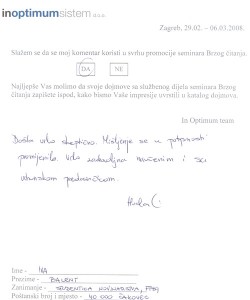 inoptimumsistem d.o.o.
Zagreb, 29.02. – 06.03.2008.
Slažem se da se moj komentar koristi u svrhu promocije seminara Brzog čitanja.
DA NE
Najljepše Vas molimo da svoje dojmove sa službenog dijela seminara Brzog
čitanja zapišete ispod, kako bismo Vaše impresije uvrstili u katalog dojmova.
In Optimum team
Došla vrlo skeptično. Mišljenje se u potpunosti
promijenilo. Vrlo zadovoljna naučenim i sa
vrhunskom predavačicom.
Ime - IVA
Prezime -
Zanimanje - STUDENTICA NOVINARSTVA, FPZG
Poštanski broj i mjesto - 40 000 ČAKOVEC